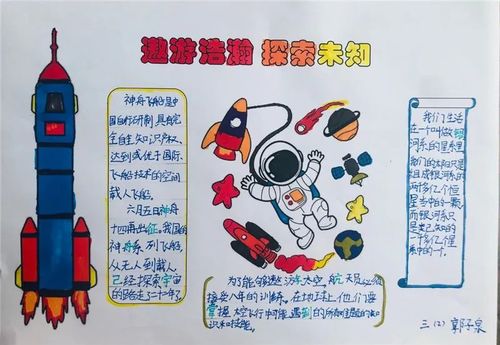 遨游浩瀚 探索未知
神舟飞船是中
国自行研制,具有完
全自主知识产权,
达到或优于国际
飞船技术的空间
载人飞船。
六月五日神舟
十四再出征,我国的
神舟系列飞船,
从无人到载人
已经探索宇宙
的路走了二十年了
我们生活
在一个叫做银
河系的星系里
我们的太阳只是
组成银河系的
两千多亿个恒
星当中的一颗,
而银河系只
是类已知的
一千多亿星
系中的一个。
为了能够遨游太空,航天员必须
接受八年的训练。在地球上,他们要
掌握太空飞行中可能遇到的所有难题的知
识和技能。
三(2) 郭子泉